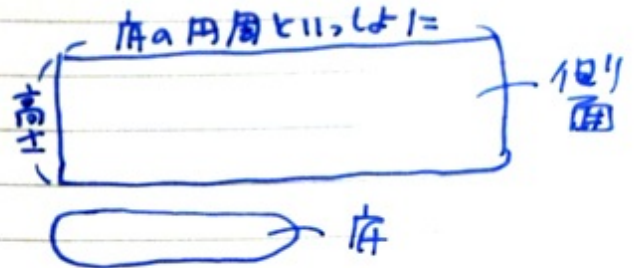 底の円周といっしょに
高さ
側面
底